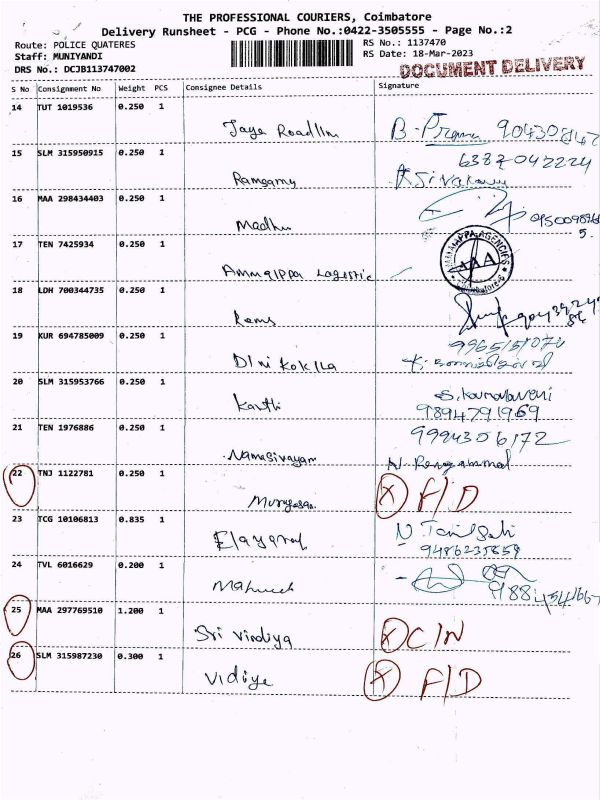 THE PROFESSIONAL COURIERS, Coimbatore
Delivery Runsheet - PCG - Phone No.:0422-3505555 - Page No.:2
Route: POLICE QUATERES
RS No.: 1137470
Staff: MUNIYANDI
RS Date: 18-Mar-2023
DRS No.: DCJB113747002
DOCUMENT DELIVERY
S No Consignment No Weight PCS Consignee Details Signature
14 TUT 1019536 0.250 1
Jaya Roadlin B-Prema
15 SLM 315950915 0.250 1
6387042224
Ramsamy
16 MAA 298434403 0.250 1
Madhu
17 TEN 7425934 0.250 1
Lagestic
18 LDH 700344735 0.250 1
Rams
19 KUR 694785009 0.250 1
Dlni Kokila
20 SLM 315953766 0.250 1
9894791969
21 TEN 1976886 0.250 1
9994306172
Namasivayam
22 TNJ 1122781 0.250 1
Murugesan X F/D
23 TCG 10106813 0.835 1
Elayaraj
9486235659
24 TVL 6016629 0.200 1
25 MAA 297769510 1.200 1
Sri Vindiya X C/N
26 SLM 315987230 0.300 1
Vidiya X F/D